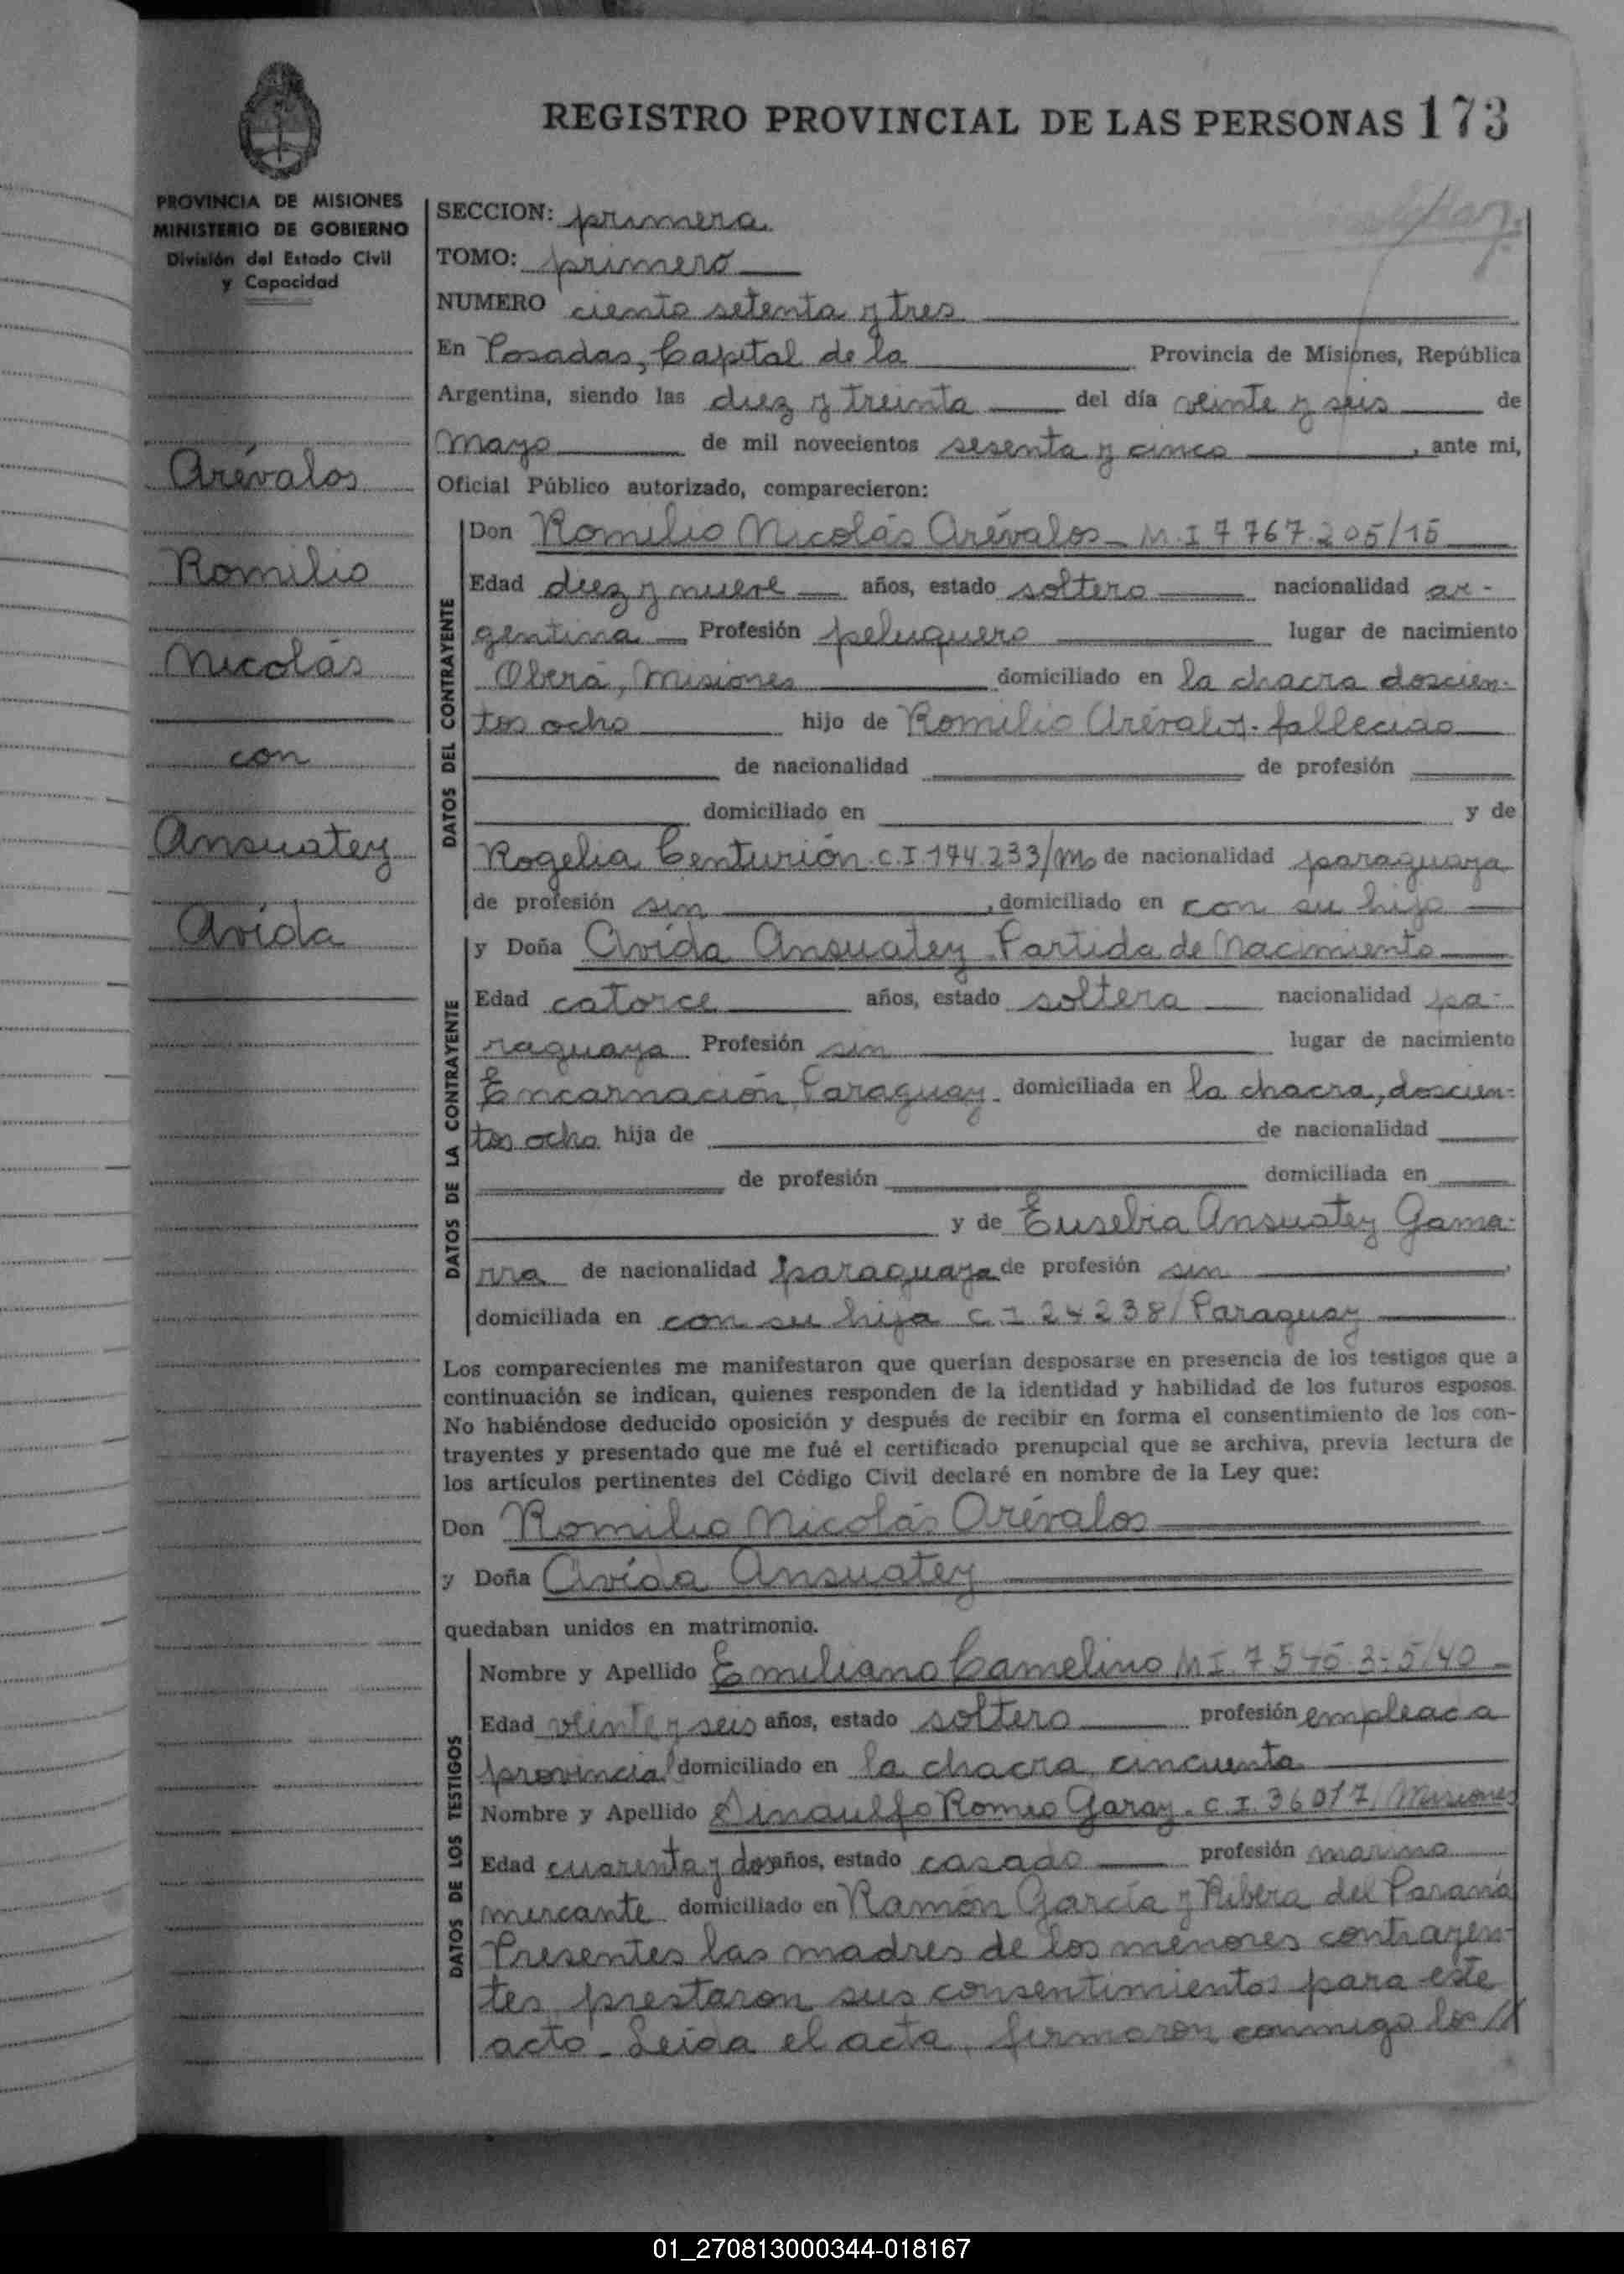 REGISTRO PROVINCIAL DE LAS PERSONAS 173
PROVINCIA DE MISIONES
MINISTERIO DE GOBIERNO
División del Estado Civil
y Capacidad
Arévalos
Romilio
Nicolás
con
Ansuatey
Avída
SECCION: primera
TOMO: primero
NUMERO ciento setenta y tres
En Posadas, Capital de la Provincia de Misiones, República
Argentina, siendo las diez y treinta del día veinte y seis de
mayo de mil novecientos sesenta y cinco, ante mi,
Oficial Público autorizado, comparecieron:
DATOS DEL CONTRAYENTE
Don Romilio Nicolás Arévalos - M.I 7.767.205/15
Edad diez y nueve años, estado soltero nacionalidad ar-
gentina Profesión peluquero lugar de nacimiento
Oberá, Misiones domiciliado en la chacra doscien-
tos ocho hijo de Romilio Arévalos - fallecido
de nacionalidad de profesión
domiciliado en y de
Rogelia Centurión. C.I. 174.233/Ms de nacionalidad paraguaya
de profesión sin, domiciliado en con su hijo
DATOS DE LA CONTRAYENTE
y Doña Avída Ansuatey. Partida de Nacimiento
Edad catorce años, estado soltera nacionalidad pa-
raguaya Profesión sin lugar de nacimiento
Encarnación, Paraguay. domiciliada en la chacra, doscien-
tos ocho hija de de nacionalidad
de profesión domiciliada en
y de Eusebia Ansuatey Gama-
rra de nacionalidad paraguaya de profesión sin,
domiciliada en con su hija C.I. 24238/Paraguay
Los comparecientes me manifestaron que querían desposarse en presencia de los testigos que a
continuación se indican, quienes responden de la identidad y habilidad de los futuros esposos.
No habiéndose deducido oposición y después de recibir en forma el consentimiento de los con-
trayentes y presentado que me fué el certificado prenupcial que se archiva, previa lectura de
los artículos pertinentes del Código Civil declaré en nombre de la Ley que:
Don Romilio Nicolás Arévalos
y Doña Avída Ansuatey
quedaban unidos en matrimonio.
DATOS DE LOS TESTIGOS
Nombre y Apellido Emiliano Camelino M.I.
Edad veinte y seis años, estado soltero profesión empleada
provincial domiciliado en la chacra cincuenta
Nombre y Apellido Romeo Garay. C.I. 36017/Misiones
Edad cuarenta y dos años, estado casado profesión marino
mercante domiciliado en Ramón García y Ribera del Paraná
Presentes las madres de los menores contrayen-
tes prestaron sus consentimientos para este
acto. Leída el acta, firmaron conmigo los //
01_270813000344-018167